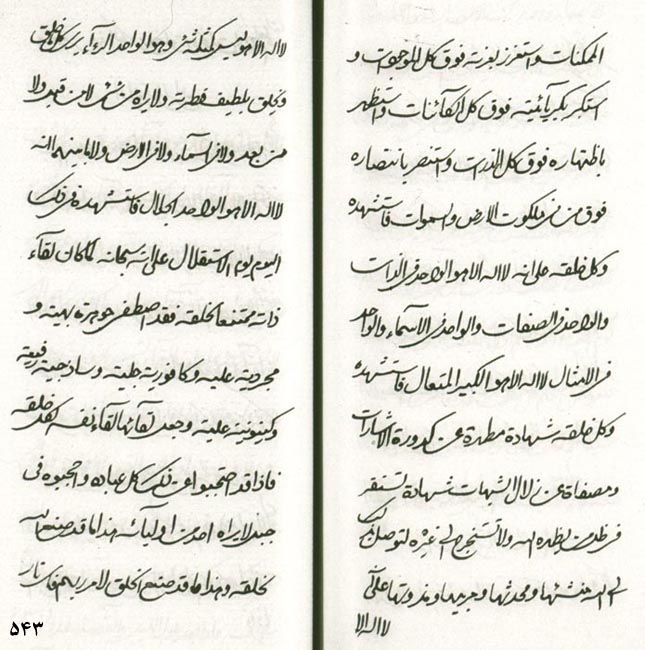 الممكنات واستعزز بعزته فوق كل الموجودات و
استكبر بكبريائيته فوق كل الكائنات واستظهر
باظتهاره فوق كل الذرات واستنصر بانتصاره
فوق من في ملكوت الارض والسموات فاستشهده
وكل خلقه على انه لا اله الا هو الواحد في الذات
والواحد في الصفات والواحد في الاسماء والواحد
في الامثال لا اله الا هو الكبير المتعال فاستشهده
وكل خلقه شهادة مطهرة عن كدورة الاشارات
ومصفاة عن زلال الشبهات شهادة تستقر
في ظل من يظهره الله ولا تستخرج الى غيره لتوصلن بذلك
الى الله منشئها ومحدثها و ومذوتها على ان
لا اله الا
لا اله الا هو ليس كمثله شئ وهو الواحد يرى كل ما خلق
ويخلق بلطيف فطرته ولا يراه من شئ لا من قبل ولا
من بعد ولا في السماء ولا في الارض ولا ما بينهما انه
لا اله الا هو الواحد الجلال فاستشهده في ذلك
اليوم يوم الاستقلال على انه سبحانه لما كان لقاء
ذاته ممتنعا لخلقه فقد اصطفى جوهرة بهية و
مجردية عليه وكافورية جلية وساذجية رفيعة
وكينونية علية وجعل لقائها لقاء نفسه لكل خلقه
فاذا قد احتجبوا عن ذلك كل عباده واحجبوه في
جبل لا يراه احد من اوليائه هذا ما قد صنع الله
لخلقه وهذا ما قد صنع الخلق لامر ربهم فان نار
۵۴۳